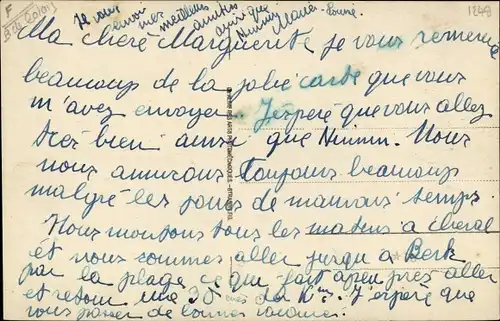 F
P. de Calais
1249
Je vous envoi mes meilleurs amitiés ainsi que Ninnin Marie-Louise
Ma chère Marguerite je vous remercie
beaucoup de la jolie carte que vous
m'avez envoyer. J'espère que vous allez
très bien ainsi que Ninnin. Nous
nous amusons toujours beaucoup
malgré les jours de mauvais temps.
Nous montons tous les matins à cheval
et nous sommes aller jusqu'a Berk
par la plage ce que fait a peu près aller
et retour une 30 aine de Km. J'espère que
vous passer de bonnes vacances.